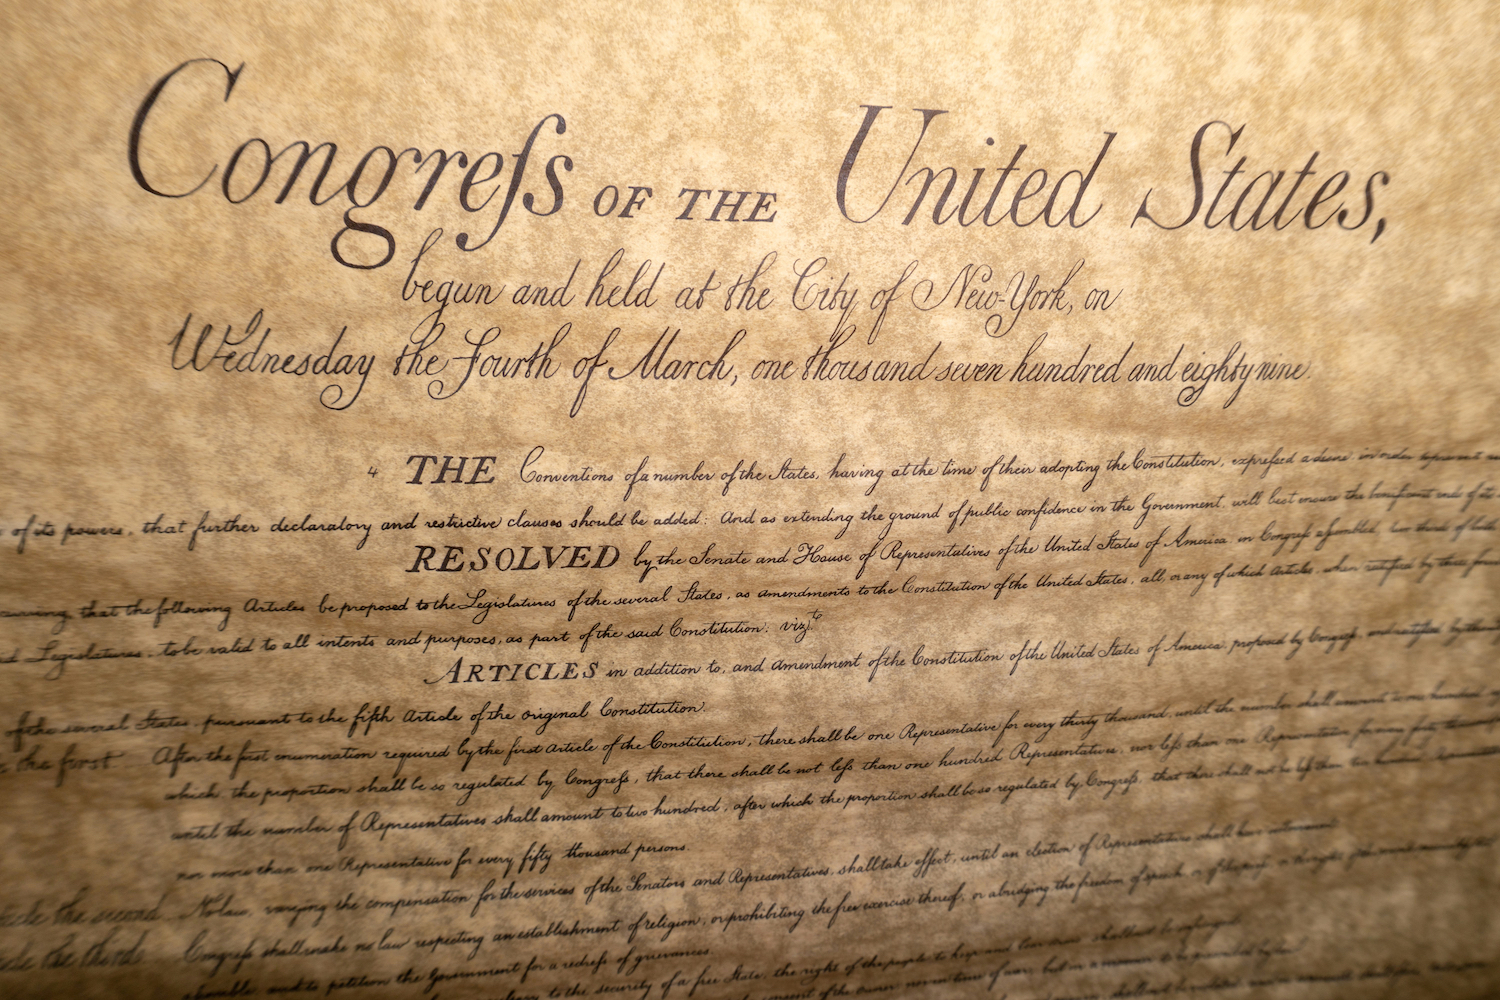 Congreſs OF THE United States,
begun and held at the City of New-York, on
Wednesday the Fourth of March, one thousand seven hundred and eighty nine.
THE Conventions of a number of the States, having at the time of their adopting the Constitution, expreſsed a desire, in order
of its powers, that further declaratory and restrictive clauses should be added: And as extending the ground of public confidence in the Government, will best ensure the beneficent ends of its
RESOLVED by the Senate and House of Representatives of the United States of America, in Congreſs aſsembled, two thirds of both
concurring, that the following Articles be proposed to the Legislatures of the several States, as amendments to the Constitution of the United States, all, or any of which Articles, when ratified by three fourths
said Legislatures, to be valid to all intents and purposes, as part of the said Constitution; vizt.
ARTICLES in addition to, and amendment of the Constitution of the United States of America, proposed by Congreſs, and ratified by the
of the several States, pursuant to the fifth Article of the original Constitution.
the first After the first enumeration required by the first Article of the Constitution, there shall be one Representative for every thirty thousand, until the number shall amount to one hundred,
which, the proportion shall be so regulated by Congreſs, that there shall be not leſs than one hundred Representatives, nor leſs than one Representative for every forty thousand
until the number of Representatives shall amount to two hundred, after which the proportion shall be so regulated by Congreſs, that there shall not be leſs than two hundred
nor more than one Representative for every fifty thousand persons.
the second No law, varying the compensation for the services of the Senators and Representatives, shall take effect, until an election of Representatives shall have intervened.
the third Congreſs shall make no law respecting an establishment of religion, or prohibiting the free exercise thereof, or abridging the freedom of speech, or of the
and to petition the Government for a redreſs of grievances.
to the security of a free State, the right of the people to keep and bear arms, shall not be infringed.